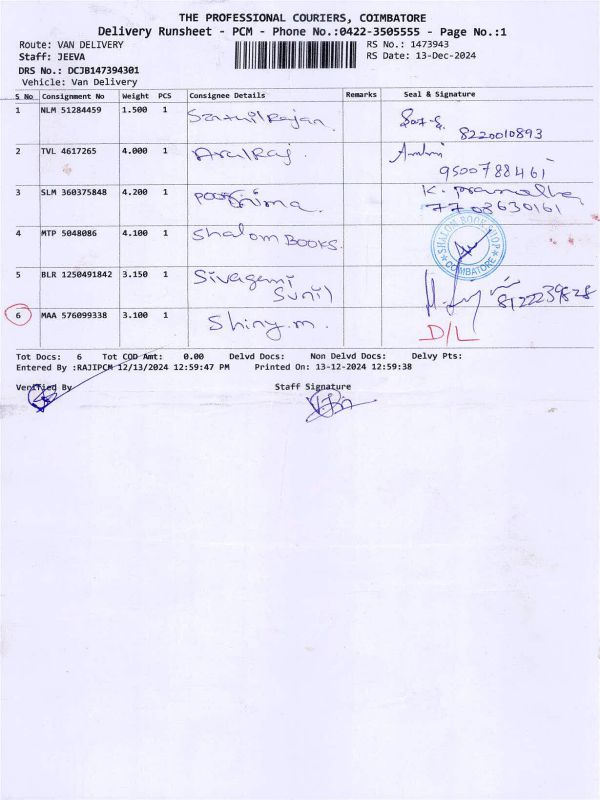 THE PROFESSIONAL COURIERS, COIMBATORE
Delivery Runsheet - PCM - Phone No.:0422-3505555 - Page No.:1
Route: VAN DELIVERY
RS No.: 1473943
Staff: JEEVA
RS Date: 13-Dec-2024
DRS No.: DCJB147394301
Vehicle: Van Delivery
S No Consignment No Weight PCS Consignee Details Remarks Seal & Signature
1 NLM 51284459 1.500 1
8220010893
2 TVL 4617265 4.000 1 ArulRaj.
9500788461
3 SLM 360375848 4.200 1 Poornima. K. Pramalha
7703630161
4 MTP 5048086 4.100 1 Shalom BOOKS. SHALOM BOOK SHOP
COIMBATORE
5 BLR 1250491842 3.150 1 Sivagami
Sunil 8122239828
6 MAA 576099338 3.100 1 Shiny.m. D/L
Tot Docs: 6 Tot COD Amt: 0.00 Delvd Docs: Non Delvd Docs: Delvy Pts:
Entered By :RAJIPCM 12/13/2024 12:59:47 PM Printed On: 13-12-2024 12:59:38
Verified By Staff Signature